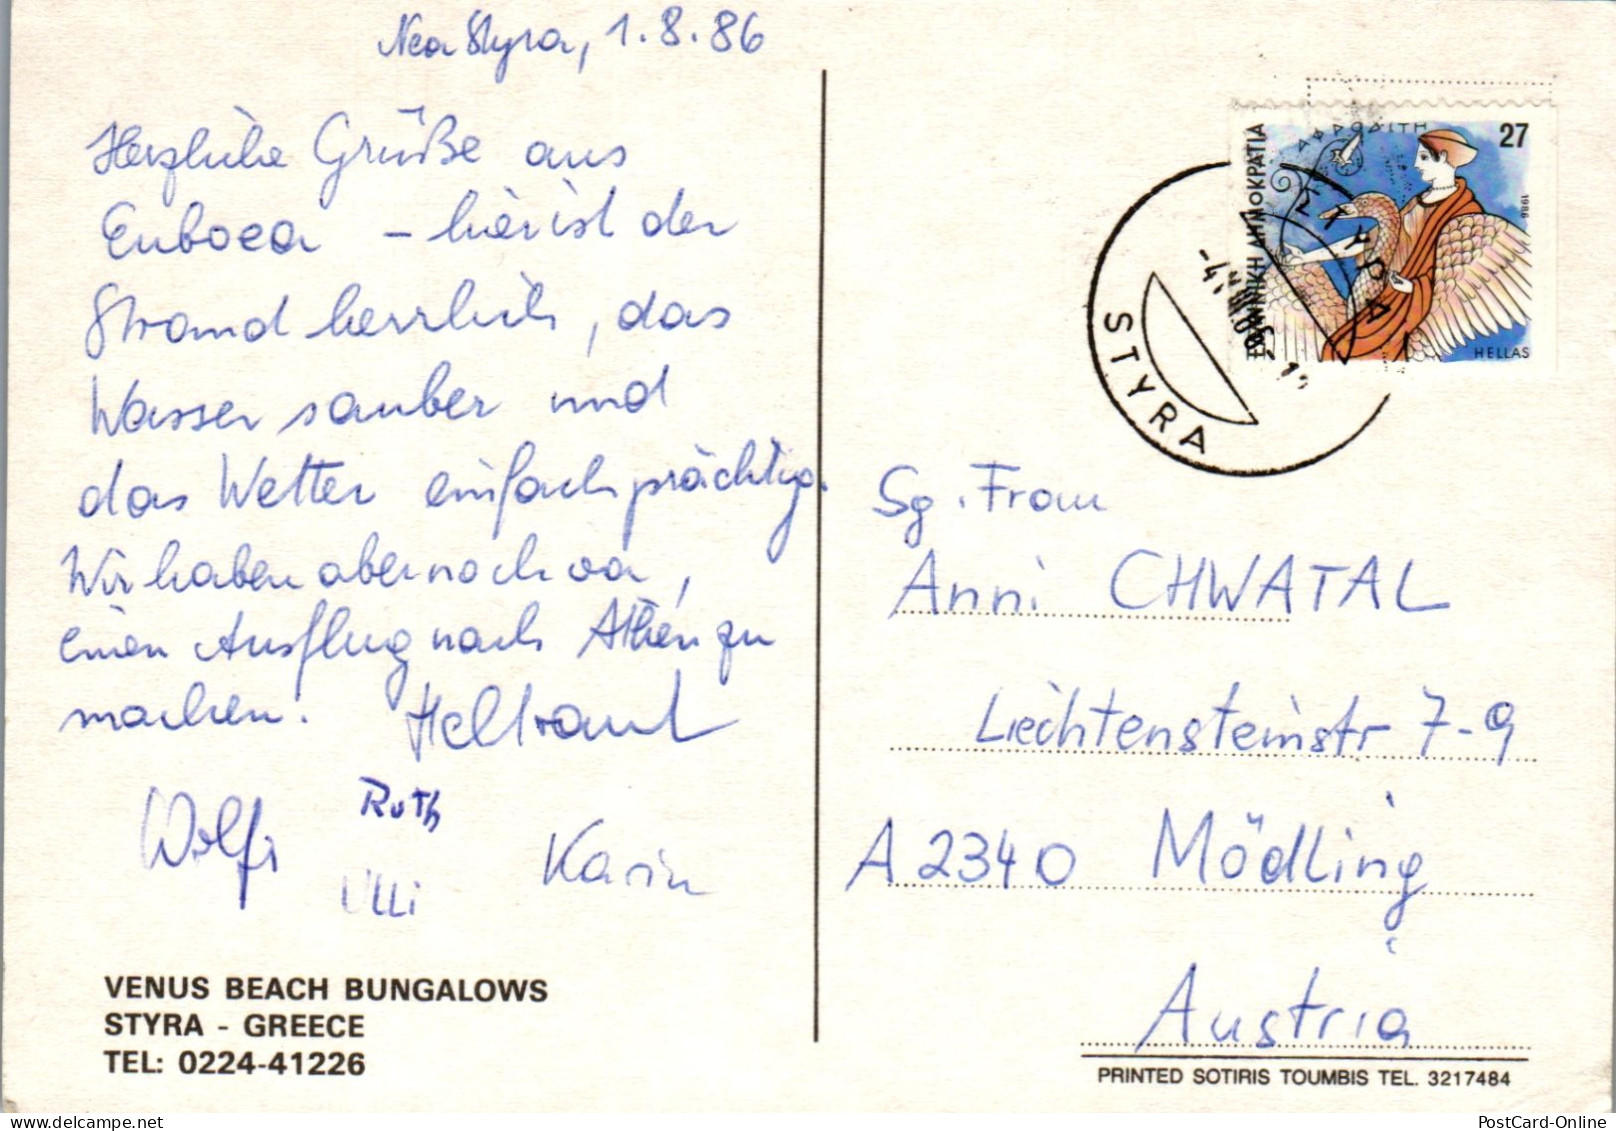 Nea Styra, 1.8.86
Herzliche Grüße aus
Euboea – hier ist der
Strand herrlich, das
Wasser sauber und
das Wetter einfach prächtig.
Wir haben aber noch vor,
einen Ausflug nach Athen zu
machen! Heltraud
Wolfi Ruth
Ulli Karin
VENUS BEACH BUNGALOWS
STYRA - GREECE
TEL: 0224-41226
ΕΛΛΗΝΙΚΗ ΔΗΜΟΚΡΑΤΙΑ
ΑΦΡΟΔΙΤΗ
27
1986
HELLAS
ΣΤΥΡΑ
STYRA
Sg. Frau
Anni CHWATAL
Liechtensteinstr 7-9
A 2340 Mödling
Austria
PRINTED SOTIRIS TOUMBIS TEL. 3217484
PostCard-Online